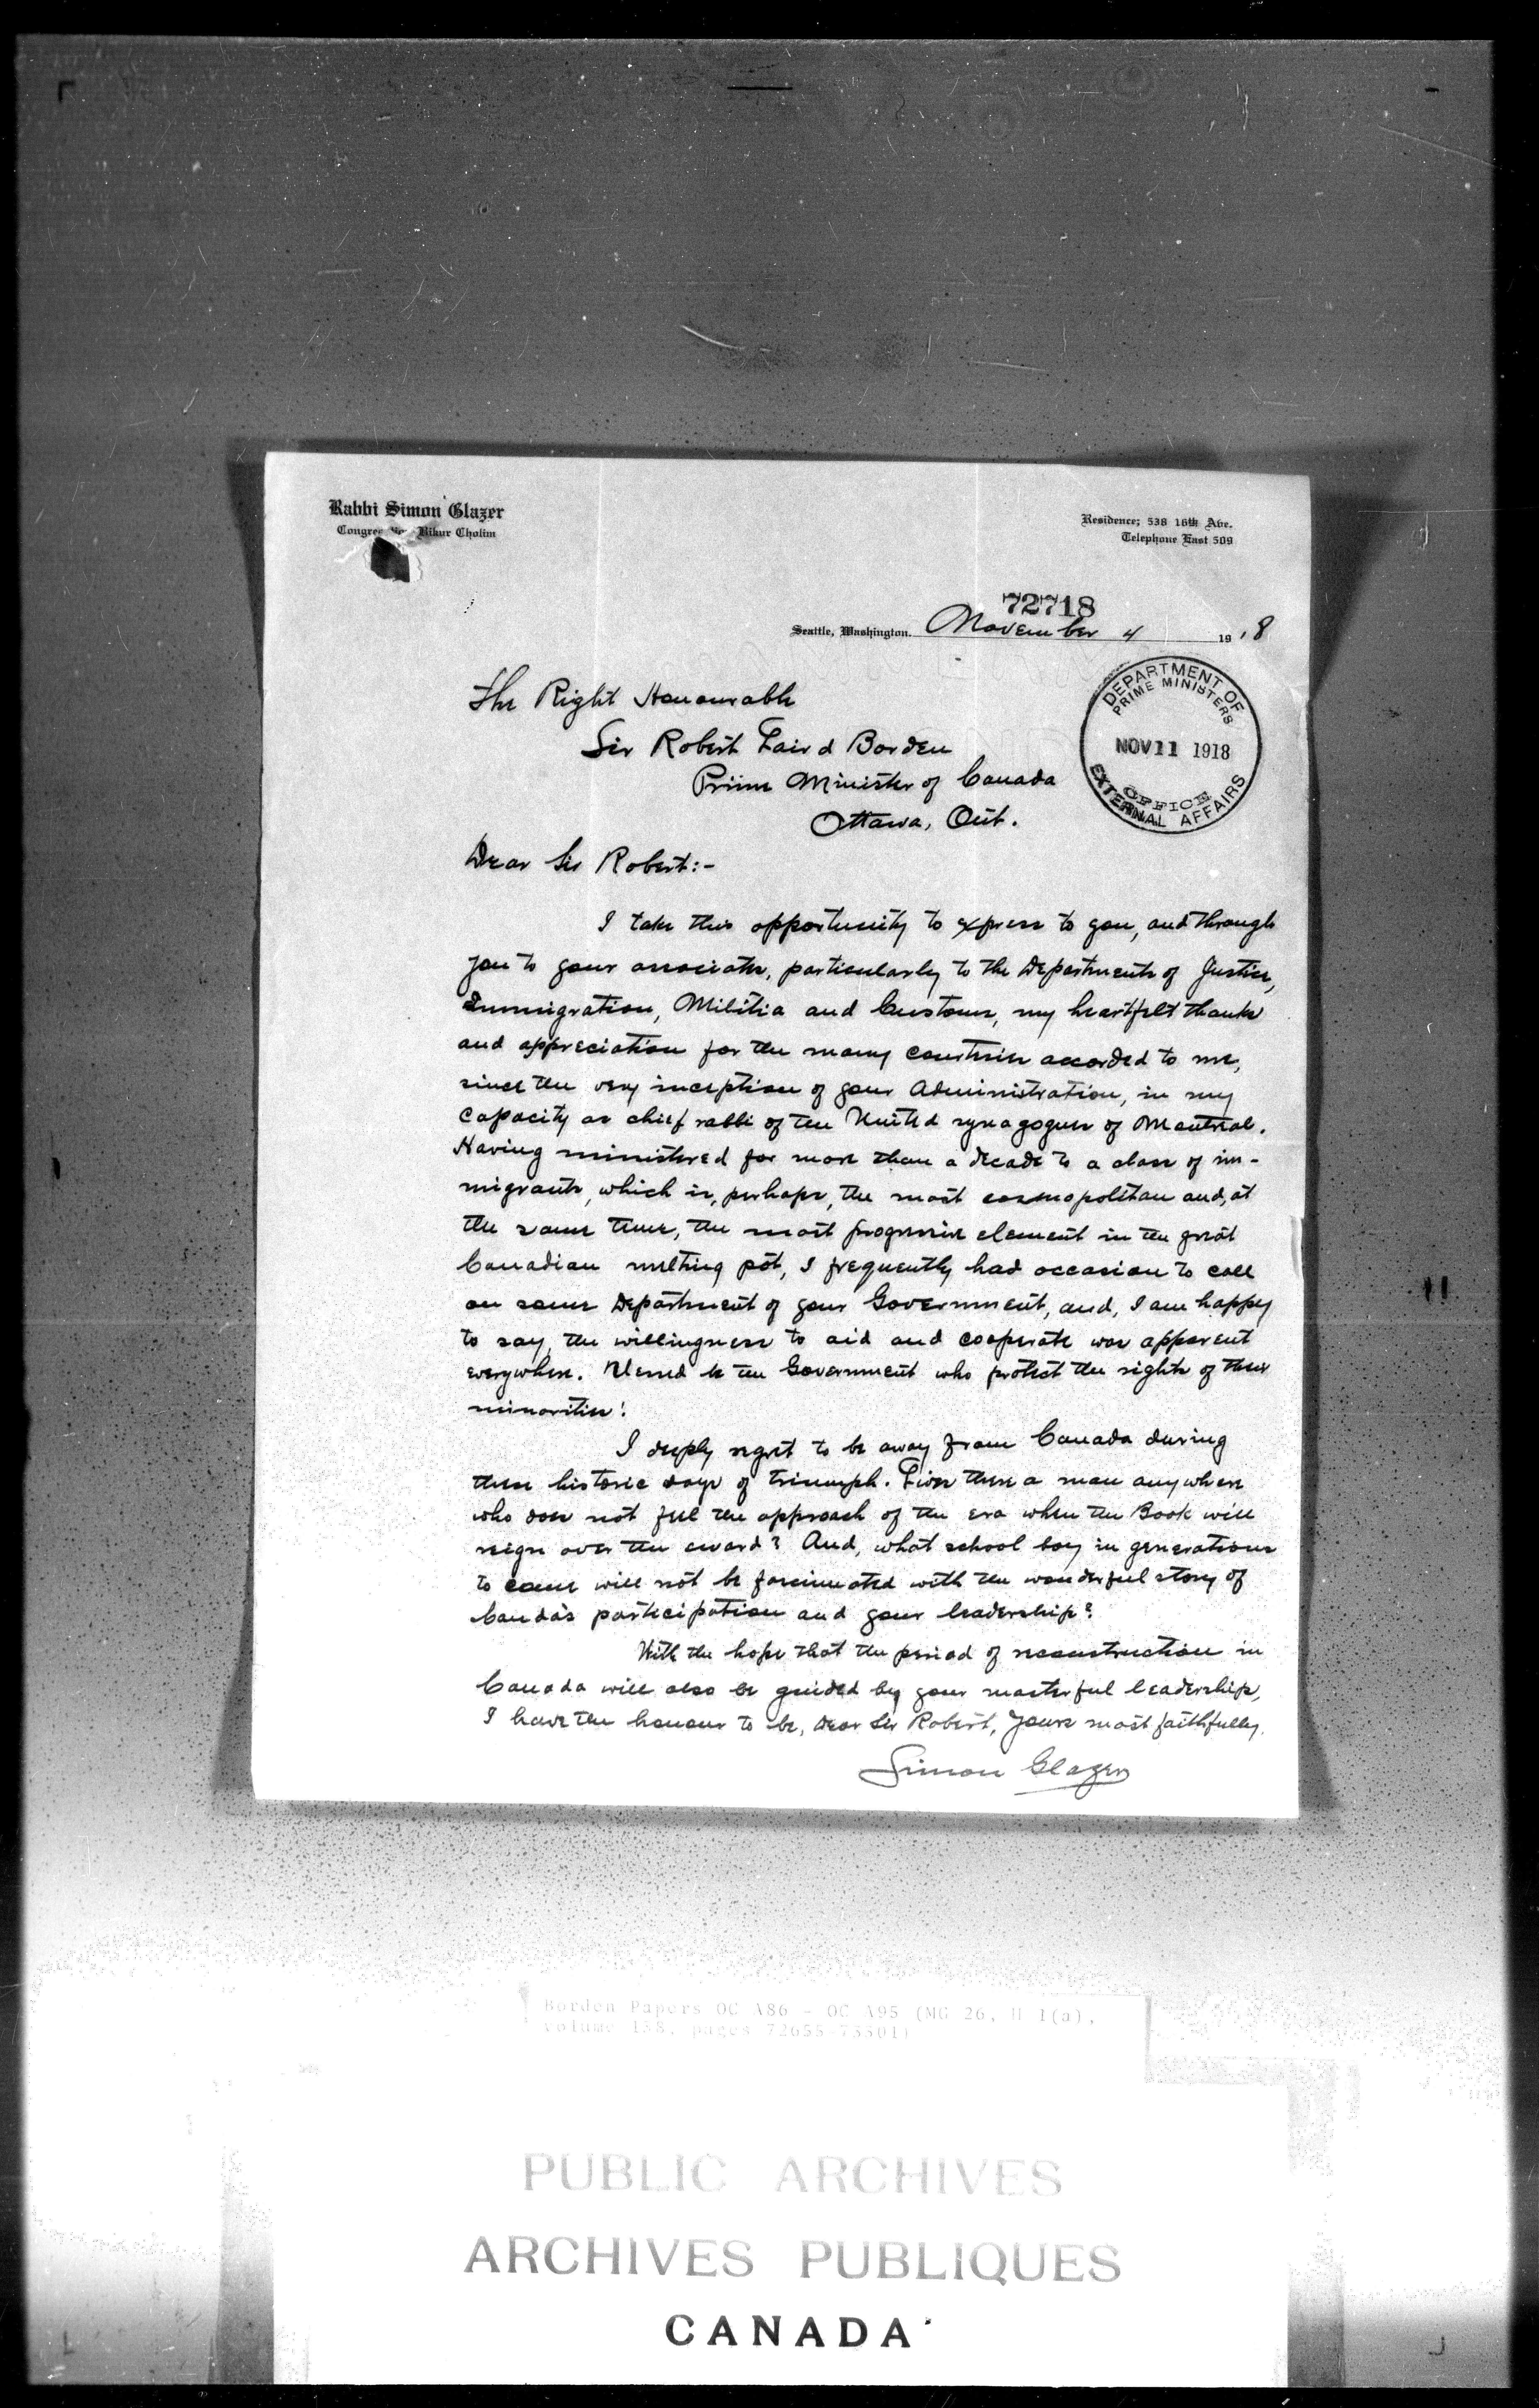 Rabbi Simon Glazer
Bikur Cholim
Residence; 538 16th Ave.
Telephone East 509
72718
Seattle, Washington. November 4 1918
DEPARTMENT OF
PRIME MINISTERS
NOV 11 1918
OFFICE
EXTERNAL AFFAIRS
The Right Honourable
Sir Robert Laird Borden
Prime Minister of Canada
Ottawa, Ont.
Dear Sir Robert:-
I take this opportunity to express to you, and through
you to your associates, particularly to the Departments of Justice,
Immigration, Militia and Customs, my heartfelt thanks
and appreciation for the many courtesies accorded to me,
since the very inception of your Administration, in my
capacity as chief rabbi of the United synagogues of Montreal.
Having ministered for more than a decade to a class of im-
migrants, which is, perhaps, the most cosmopolitan and, at
the same time, the most progressive element in the great
Canadian melting pot, I frequently had occasion to call
on some Department of your Government, and, I am happy
to say, the willingness to aid and cooperate was apparent
everywhere. Blessed be the Government who protect the rights of their
minorities!
I deeply regret to be away from Canada during
these historic days of triumph. Lives there a man anywhere
who does not feel the approach of the era when the Book will
reign over the sword? And, what school boy in generations
to come will not be fascinated with the wonderful story of
Canda's participation and your leadership?
With the hope that the period of reconstruction in
Canada will also be guided by your masterful leadership,
I have the honour to be, Dear Sir Robert, yours most faithfully,
Simon Glazer
Borden Papers OC A86 - OC A95 (MG 26, H 1(a),
volume 138, pages 72655-73301)
PUBLIC ARCHIVES
ARCHIVES PUBLIQUES
CANADA